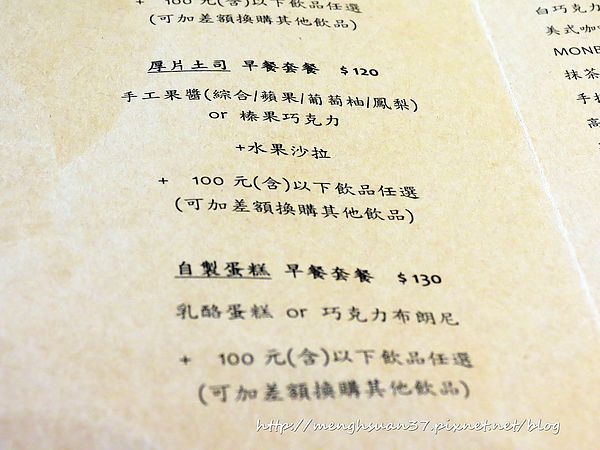 + 100 元(含)以下飲品任選
(可加差額換購其他飲品)
厚片土司 早餐套餐 $120
手工果醬(綜合/蘋果/葡萄柚/鳳梨)
or 榛果巧克力
+水果沙拉
+ 100 元(含)以下飲品任選
(可加差額換購其他飲品)
自製蛋糕 早餐套餐 $130
乳酪蛋糕 or 巧克力布朗尼
+ 100 元(含)以下飲品任選
(可加差額換購其他飲品)
白巧克力
美式咖啡
MONE
抹茶
手
高
http://menghsuan37.pixnet.net/blog